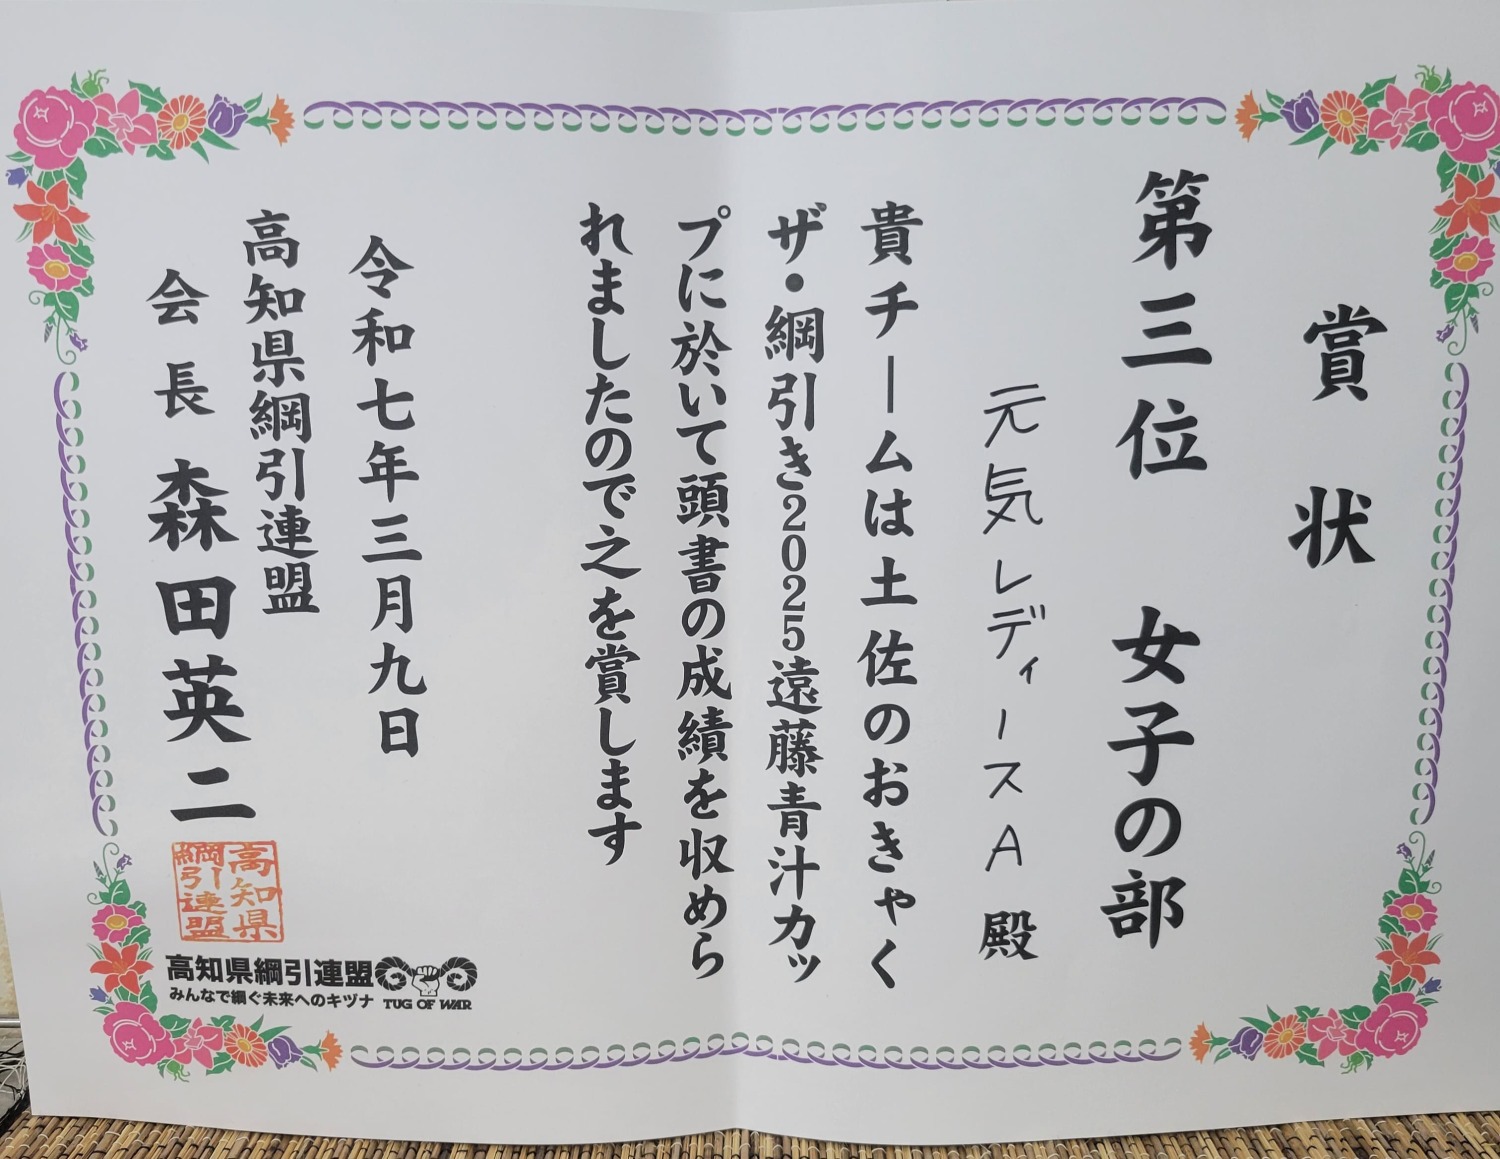 賞状
第三位 女子の部
元気レディースA 殿
貴チームは土佐のおきゃく
ザ・綱引き2025遠藤青汁カッ
プに於いて頭書の成績を収めら
れましたので之を賞します
令和七年三月九日
高知県綱引連盟
会長 森田英二
高知県
綱引連盟
高知県綱引連盟
みんなで綱ぐ未来へのキヅナ
TUG OF WAR